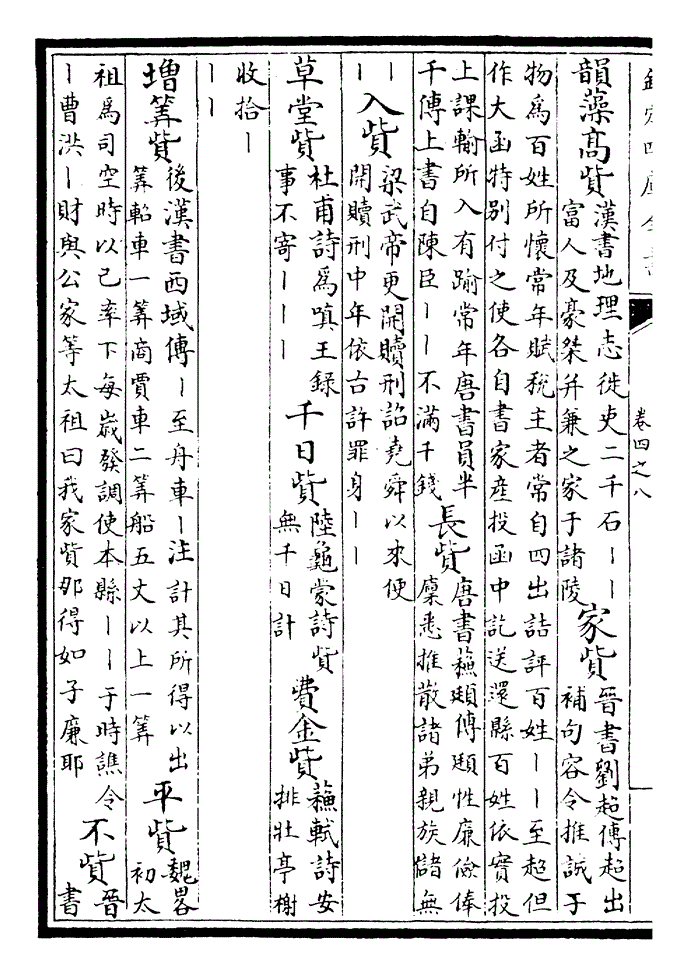 欽定四庫全書
卷四之八
韻藻高貲
漢書地理志徙吏二千石丨丨
富人及豪桀并兼之家于諸陵
家貲
晉書劉超傳超出
補句容令推誠于
物為百姓所懷常年賦稅主者常自四出詰評百姓丨丨至超但
作大函特別付之使各自書家產投函中訖送還縣百姓依實投
上課輸所入有踰常年唐書員半
千傳上書自陳臣丨丨不滿千錢
長貲
唐書蘇頲傳頲性廉儉俸
廩悉推散諸弟親族儲無
丨
入貲
梁武帝更開贖刑詔堯舜以來便
開贖刑中年依古許罪身丨丨
草堂貲
杜甫詩為嗔王錄
事不寄丨丨丨
千日貲
陸龜蒙詩貲
無千日計
費金貲
蘇軾詩安
排牡亭榭
收拾丨
丨丨
增筭貲
後漢書西域傳丨至舟車丨注計其所得以出
筭軺車一筭商賈車二筭船五丈以上一筭
平貲
魏畧
初太
祖為司空時以己率下每歲發調使本縣丨丨于時譙令
丨曹洪丨財與公家等太祖曰我家貲那得如子廉耶
不貲
晉
書